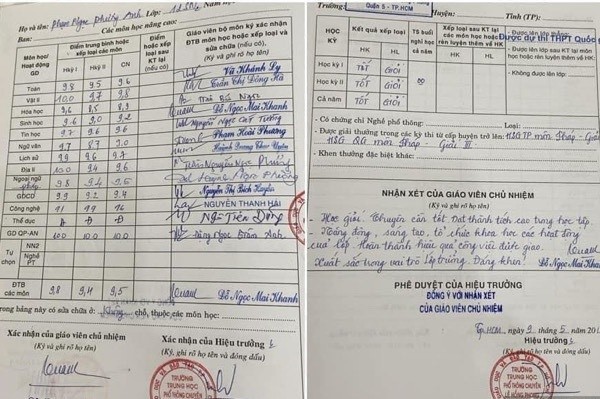 Họ và tên: Phạm Ngọc Phương Anh Lớp:
Các môn học nâng cao:
Ban:
Môn học/ Hoạt động GD
Điểm trung bình hoặc xếp loại các môn
Hky I Hky II CN
Điểm hoặc xếp loại sau KT lại (nếu có)
Giáo viên bộ môn ký xác nhận ĐTB môn học hoặc xếp loại và sửa chữa (nếu có),
(Ký và ghi rõ họ tên)
Toán 9.8 9.5 9.6 Vũ Khánh Ly
Vật lí 10.0 9.7 9.8 Trần Thị Đông Hà
Hóa học 9.6 8.5 8.9
Sinh học 9.6 9.0 9.2 Đỗ Ngọc Mai Khanh
Tin học 9.7 9.6 9.6 Nguyễn Ngọc Cát Tường
Ngữ văn 9.7 8.7 9.0 Phạm Hoài Phương
Lịch sử 9.9 9.6 9.7
Địa lí 10.0 9.4 9.6
Ngoại ngữ 9.8 9.4 9.5
GDCD 9.9 9.2 9.4 Nguyễn Thị Bích Huyền
Công nghệ 9.1 NGUYỄN THANH HẢI
Thể dục Đ Đ Đ
GD QP-AN 10.0 10.0 10.0
Tự chọn
NN2
Nghề PT
ĐTB các môn 9.8 9.4 9.5 Đỗ Ngọc Mai Khanh
Trong bảng này có sửa chữa ở: không chỗ, thuộc các môn học:
Xác nhận của giáo viên chủ nhiệm
(Ký và ghi rõ họ tên)
Xác nhận của Hiệu trưởng
(Ký, ghi rõ họ tên và đóng dấu)
TRƯỜNG TRUNG HỌC PHỔ THÔNG CHUYÊN
Trường:
Quận 5 - TP.HCM
Huyện: Tỉnh (TP):
HỌC KỲ
Kết quả xếp loại
HK HL
TS buổi nghỉ học cả năm
Xếp loại sau KT lại các môn hoặc rèn luyện thêm về HK
HK HL
Được dự thi THPT Quốc g
- Được lên lớp sau KT lại môn học hoặc rèn luyện thêm về HK
- Không được lên lớp:
Học kỳ I TỐT GIỎI
Học kỳ II TỐT GIỎI
Cả năm TỐT GIỎI
- Có chứng chỉ Nghề phổ thông: Loại:
- Được giải thưởng trong các kỳ thi từ cấp huyện trở lên: HSG TP môn Pháp - Giải
HSG QG môn Pháp - Giải III
- Khen thưởng đặc biệt khác:
NHẬN XÉT CỦA GIÁO VIÊN CHỦ NHIỆM
- Học giỏi. Chuyên cần tốt. Đạt thành tích cao trong học tập.
- Năng động, sáng tạo, tổ chức khoa học các hoạt động
của lớp. Hoàn thành hiệu quả công việc được giao.
Xuất sắc trong vai trò lớp trưởng. Đáng khen! Đỗ Ngọc Mai Khanh
PHÊ DUYỆT CỦA HIỆU TRƯỞNG
ĐỒNG Ý VỚI NHẬN XÉT
CỦA GIÁO VIÊN CHỦ NHIỆM
Tp.HCM, ngày 9 tháng 5 năm 201
Hiệu trưởng
(Ký, ghi rõ họ tên và đóng dấu)
TRƯỜNG TRUNG HỌC PHỔ THÔNG CHUYÊN
LÊ HỒNG PHONG